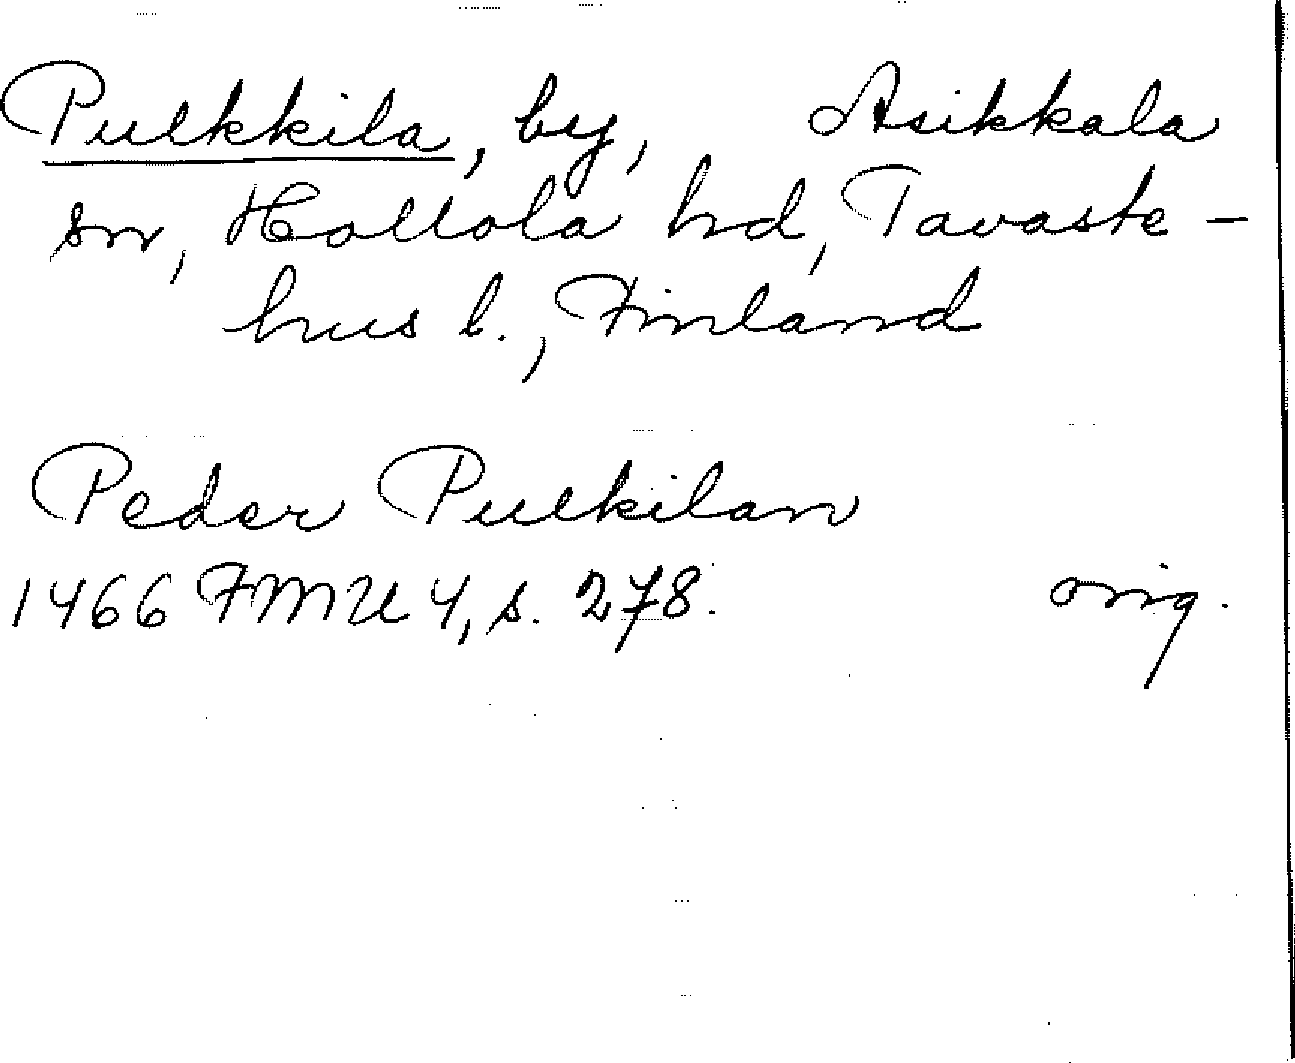 Pulkkila, by, Asikkala
sn, Hollola hd, Tavaste-
hus l., Finland
Peder Pulkilan
1466 FMU 4, s. 278. orig.